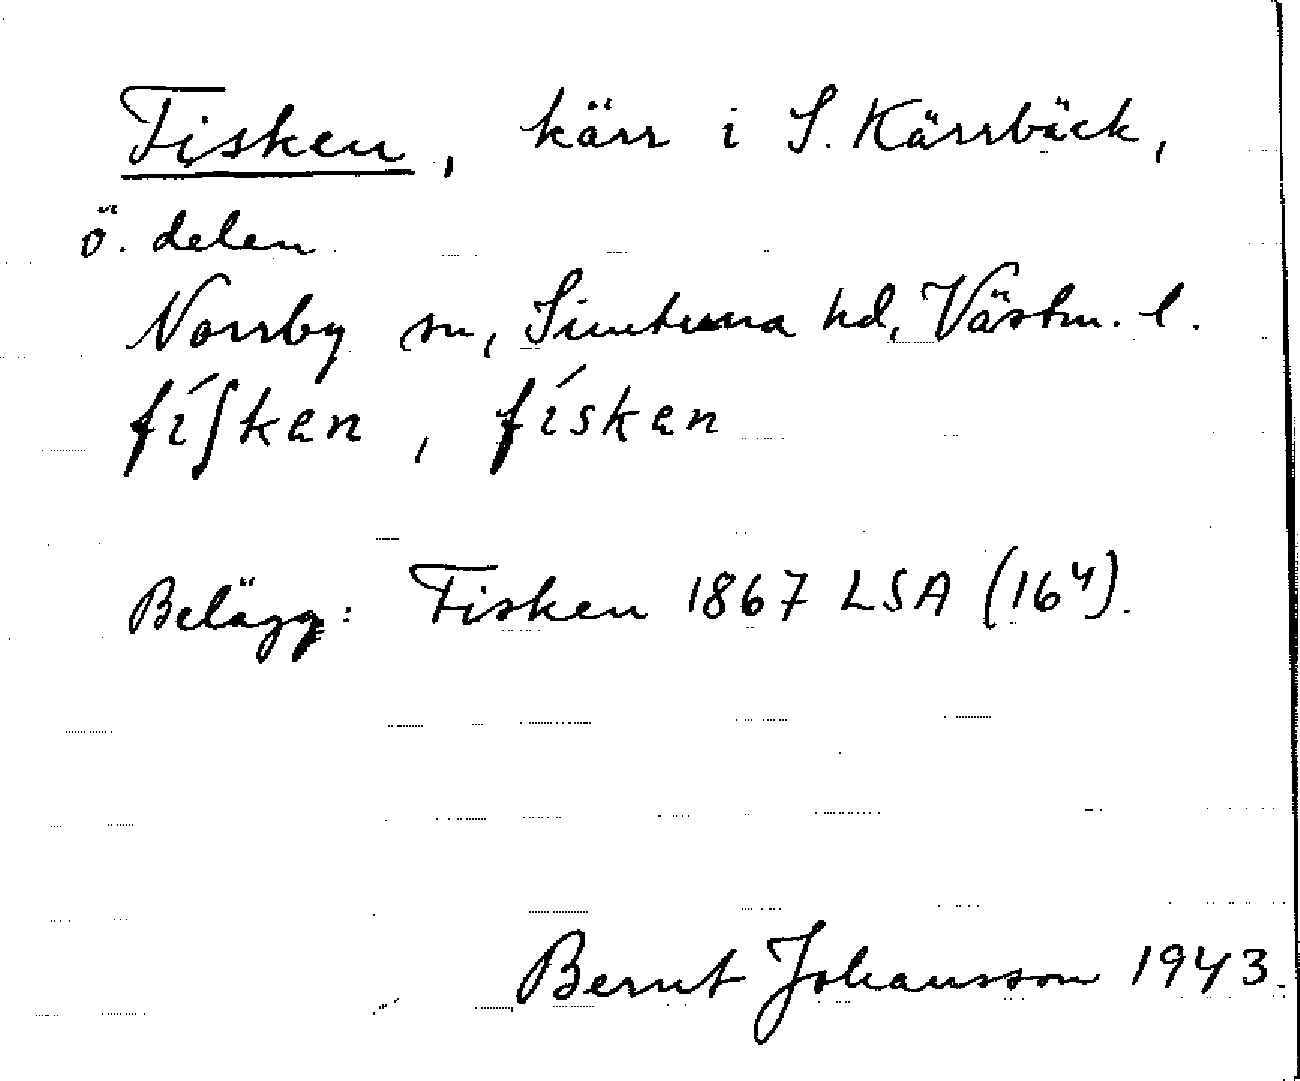 Fisken, kärr i S. Kärrbäck,
ö. delen
Norrby sn, Simtuna hd, Västm. l.
fíʃkan, fískan
Belägg: Fisken 1867 LSA (16⁴).
Bernt Johansson 1943.